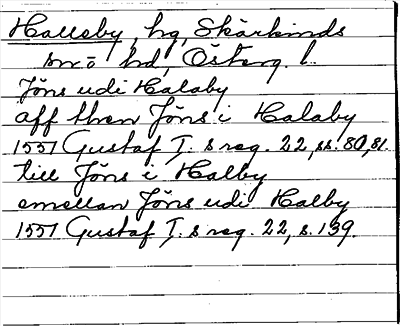 Hallsby, hg, Skärkinds
sn o hd, Österg. l.
Jöns udi Halaby
aff then Jöns i Halaby
1551 Gustaf I. s reg. 22, ss. 80, 81.
till Jöns i Halby
emellan Jöns udi Halby
1551 Gustaf I. s reg. 22, s. 139.